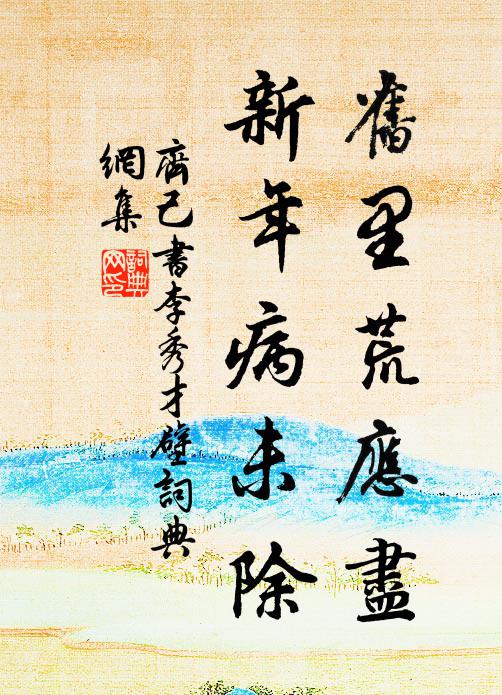 舊里荒應盡
新年病未除
齊己書李秀才壁詞典
網集
詞典网印